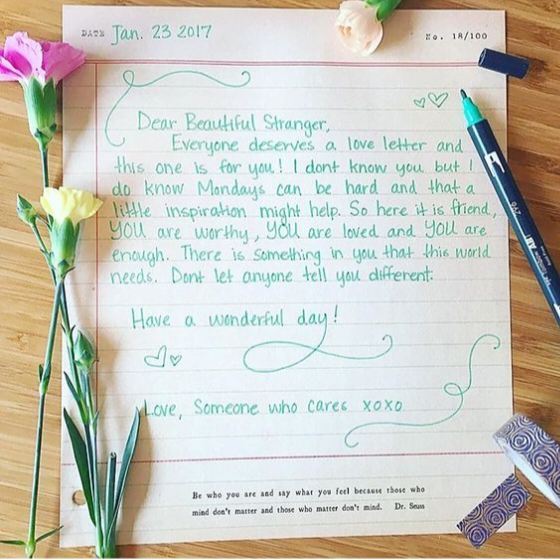 DATE Jan. 23 2017
No. 18/100
Dear Beautiful Stranger,
Everyone deserves a love letter and
this one is for you! I dont know you but I
do know Mondays can be hard and that a
little inspiration might help. So here it is friend,
YOU are worthy, YOU are loved and YOU are
enough. There is something in you that this world
needs. Dont let anyone tell you different.
Have a wonderful day!
Love, Someone who cares xoxo
Be who you are and say what you feel because those who
mind don't matter and those who matter don't mind. Dr. Seuss